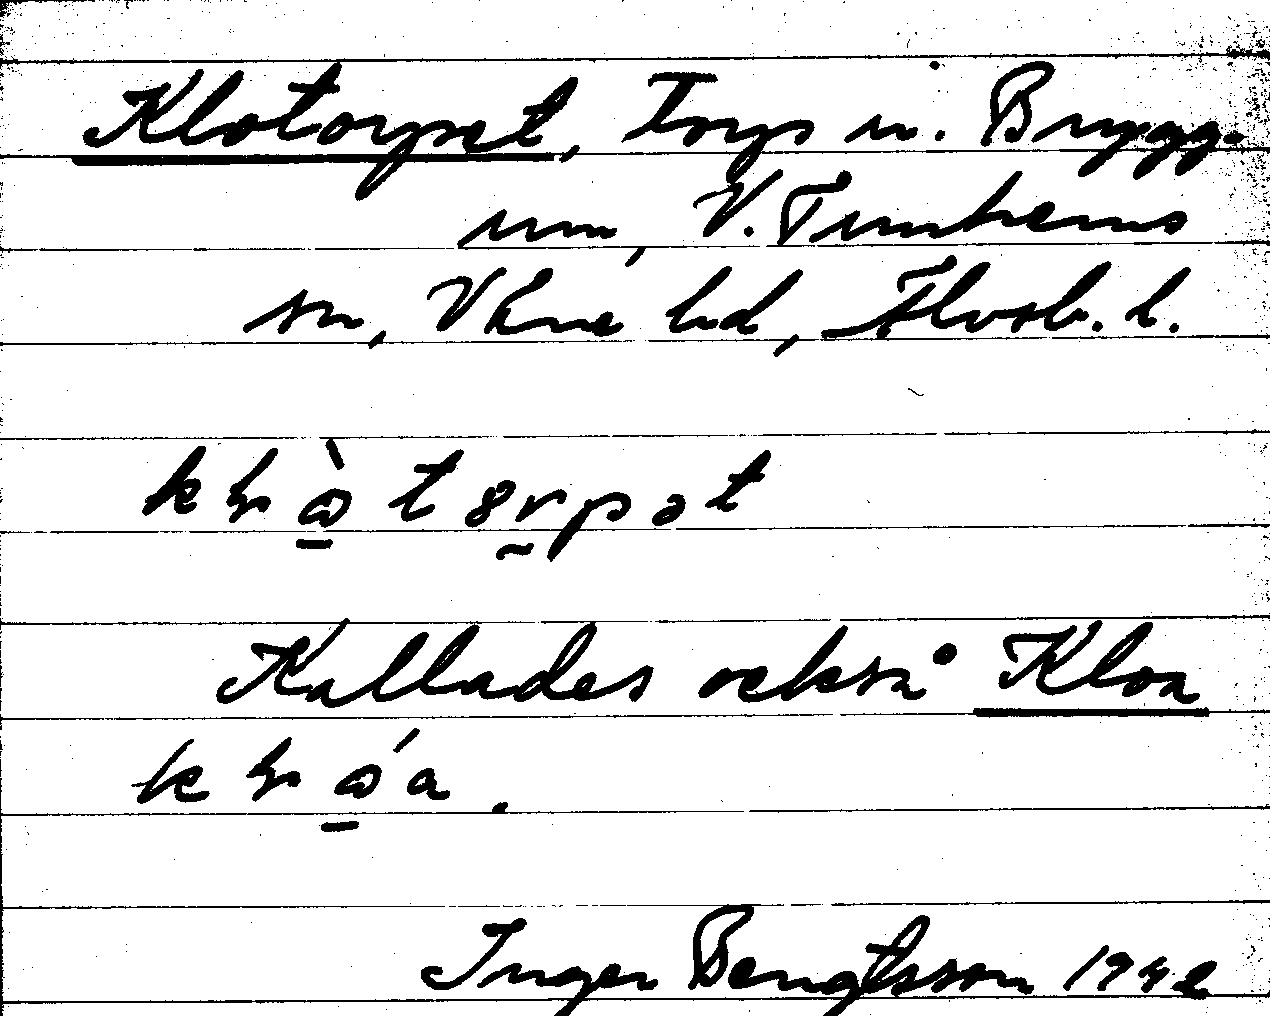 Klotorpet, Torp u. Brygg-
um, V. Tunhems
sn, Väne hd, Älvsb. l.
Kallades också Kloa
Inger Bengtsson 1942